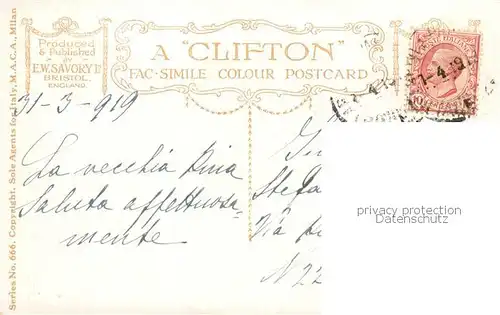 Produced
& Published
BY
E.W. SAVORY Ld
BRISTOL.
ENGLAND.
A "CLIFTON"
FAC-SIMILE COLOUR POSTCARD
Series No. 666. Copyright. Sole Agents for Italy, M.A.C.A., Milan
31-3-919
La vecchia
saluta affettuosa-
mente
Stefa
Via
N 22
1-4.19
privacy protection
Datenschutz